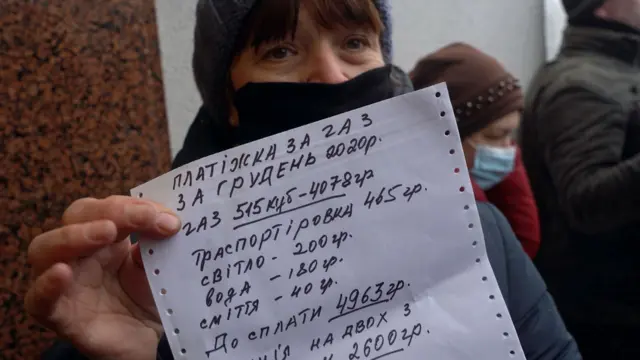 ПЛАТІЖКА ЗА ГАЗ
ЗА ГРУДЕНЬ 2020р.
ГАЗ 515 куб - 4078 гр
ТРАСПОРТІРОВКА 465 гр.
СВІТЛО - 200 гр.
ВОДА - 180 гр.
СМІТТЯ - 40 гр.
ДО СПЛАТИ 4963 гр.
НА ДВОХ З
2600 гр.